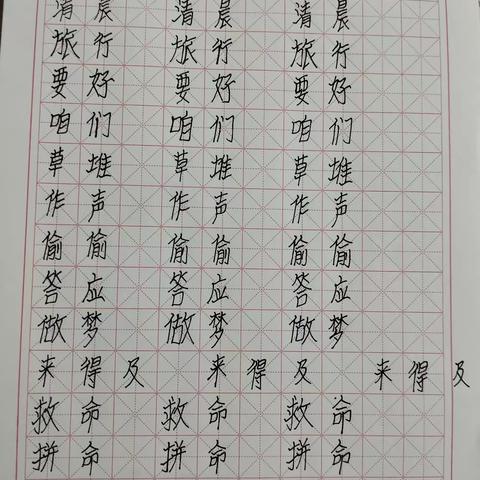 清晨 清晨 清晨
旅行 旅行 旅行
要好 要好 要好
咱们 咱们 咱们
草堆 草堆 草堆
作声 作声 作声
偷偷 偷偷 偷偷
答应 答应 答应
做梦 做梦 做梦
来得及 来得及 来得及
救命 救命 救命
拼命 拼命 拼命